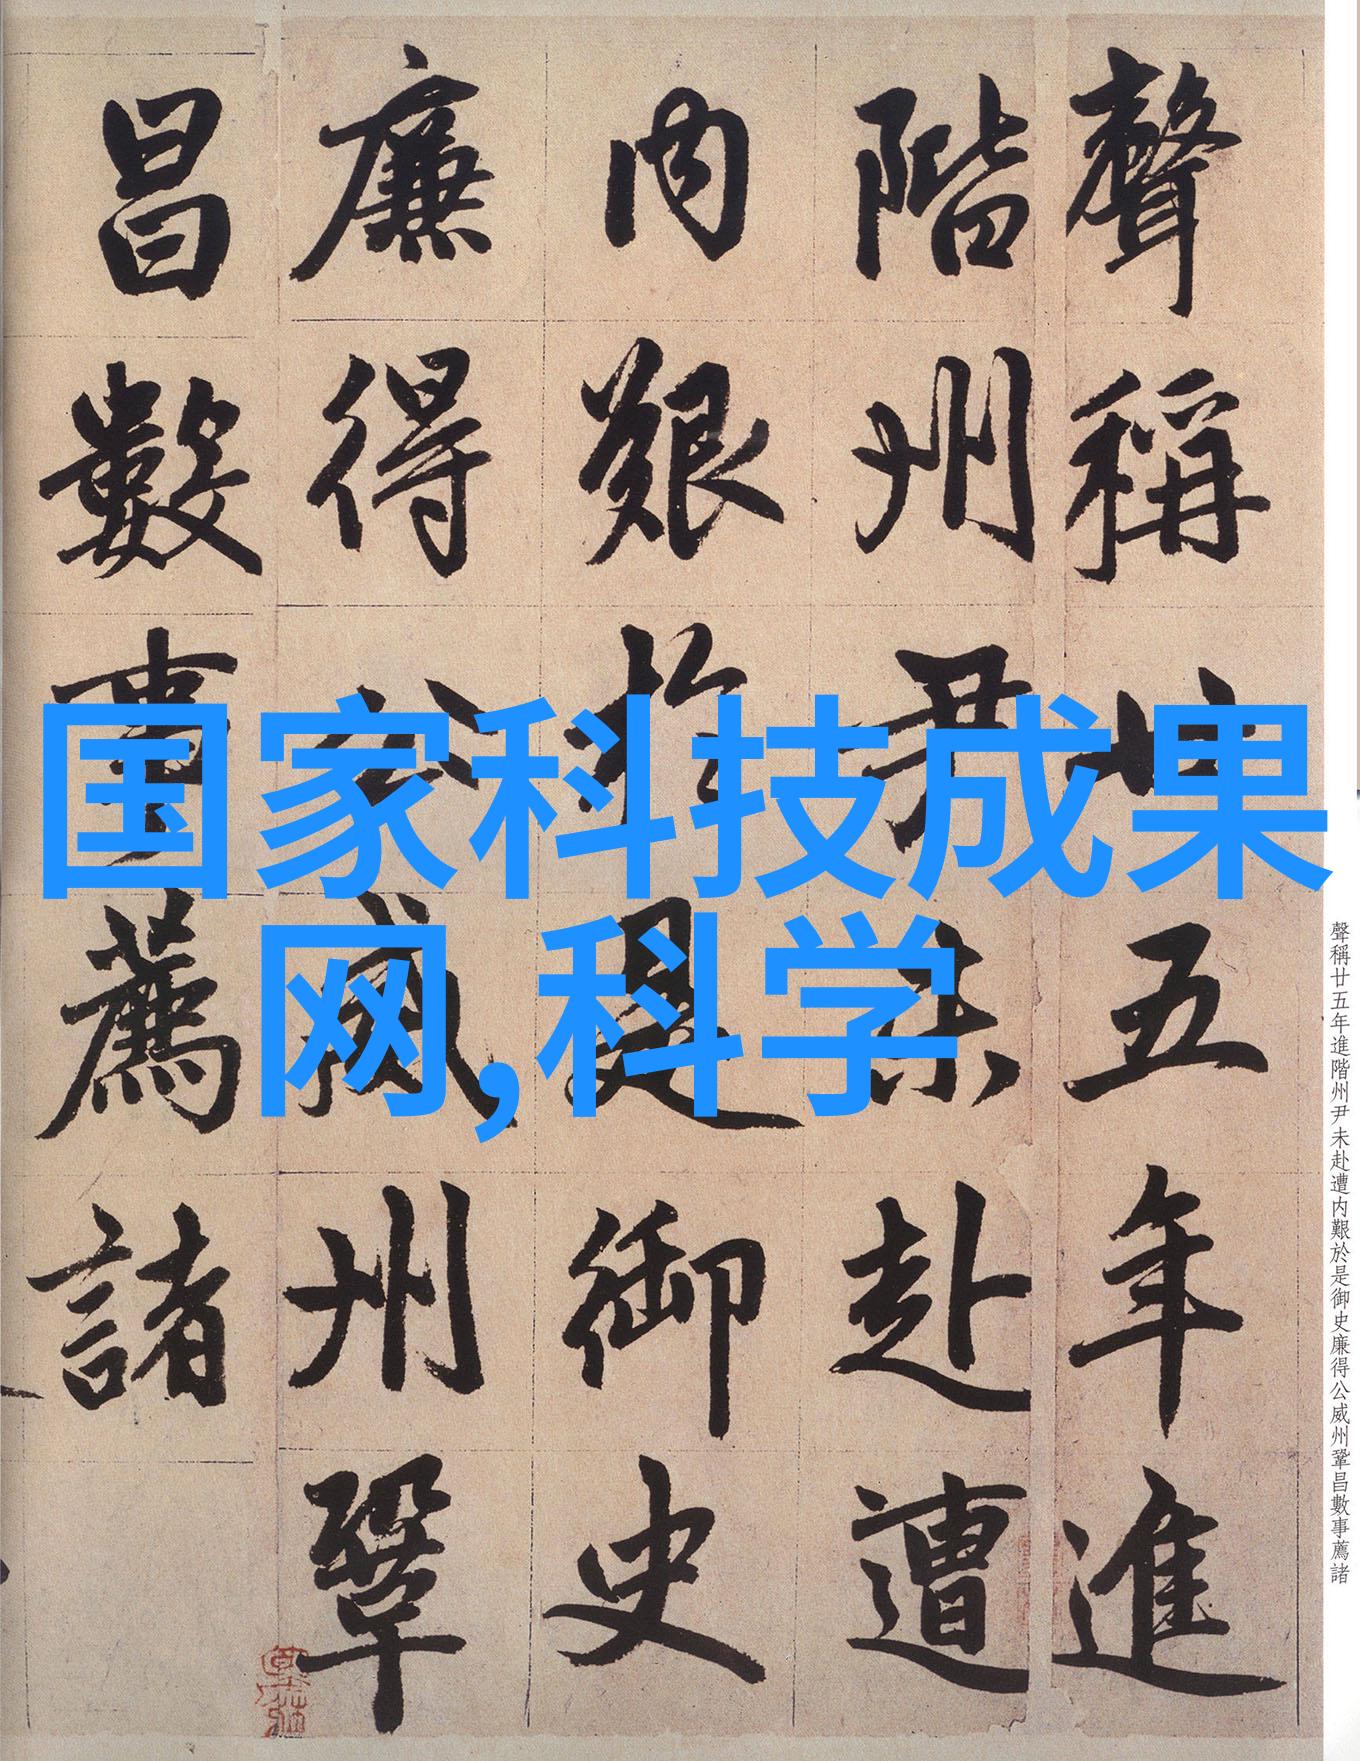 聲稱廿五年進
階州尹未赴遭
内艱於是御史
廉得公威州鞏
昌數事薦諸
国家科技成果
网,科学
聲稱廿五年進階州尹未赴遭内艱於是御史廉得公威州鞏昌數事薦諸